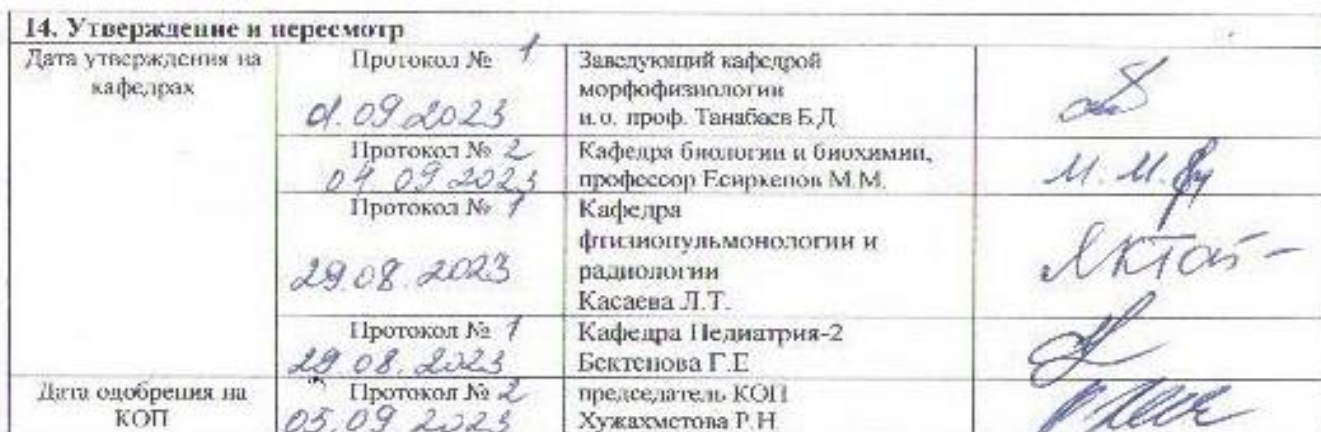 14. Утверждение и пересмотр
Дата утверждения на
кафедрах
Протокол № 1
09.2023
Заведующий кафедрой
морфофизиологии
и.о. проф. Танабаев Б.Д
Протокол № 2
04 09 2023
Кафедра биологии и биохимии,
профессор Есиркепов М.М.
М. М.
Протокол № 1
29.08.2023
Кафедра
фтизиопульмонологии и
радиологии
Касаева Л.Т.
Протокол № 1
29 08. 2023
Кафедра Педиатрия-2
Бектенова Г.Е
Дата одобрения на
КОП
Протокол № 2
05.09 2023
председатель КОП
Хужахметова Р.Н